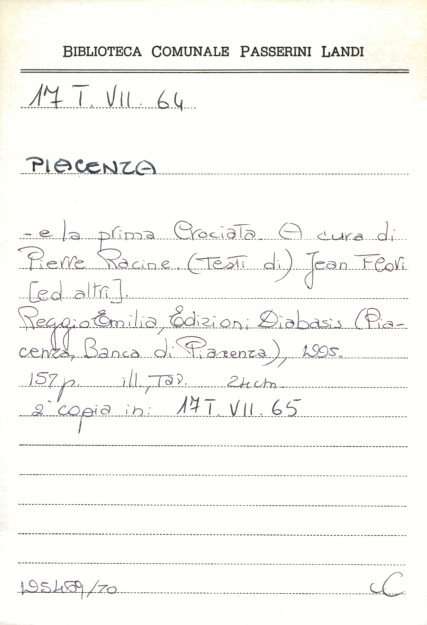 BIBLIOTECA COMUNALE PASSERINI LANDI
17 T. VII. 64
PIACENZA
- e la prima Crociata. A cura di
Pierre Racine. (Testi di) Jean Flori
[ed altri].
Reggio Emilia, Edizioni Diabasis (Pia-
cenza, Banca di Piacenza), 1995.
157 p. ill., Tav. 24 cm.
2ª copia in: 17 T. VII. 65
CC